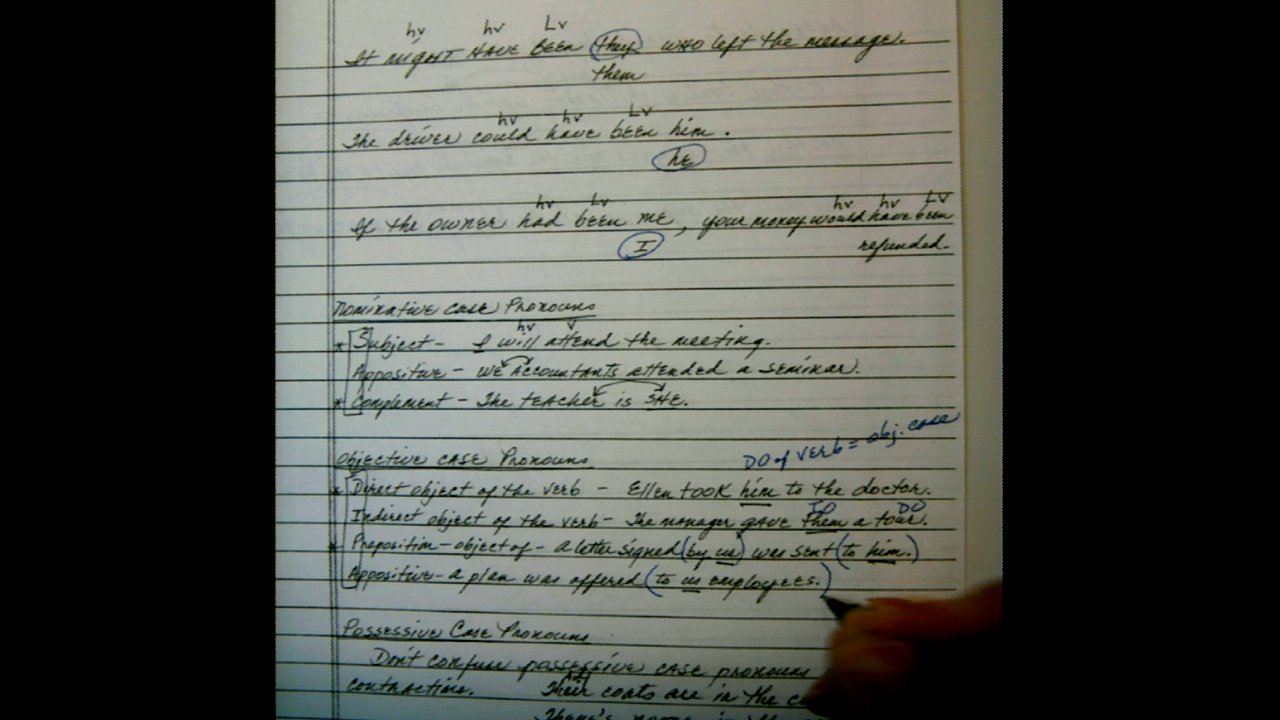 hv hv Lv
It might HAVE BEEN they who left the message.
them
hv hv Lv
The driver could have been him.
he
hv Lv hv hv Lv
If the owner had been me, your money would have been
I refunded.
Nominative Case Pronouns
hv v
* Subject - I will attend the meeting.
Appositive - we accountants attended a seminar.
* Complement - The teacher is SHE.
DO of verb = obj. case
Objective case Pronouns
* Direct object of the verb - Ellen took him to the doctor.
IO DO
Indirect object of the verb - The manager gave them a tour.
* Preposition - object of - a letter signed (by us) was sent (to him.)
Appositive - a plan was offered (to us employees.)
Possessive Case Pronouns
Don't confuse possessive case pronouns
contractions. Their coats are in the